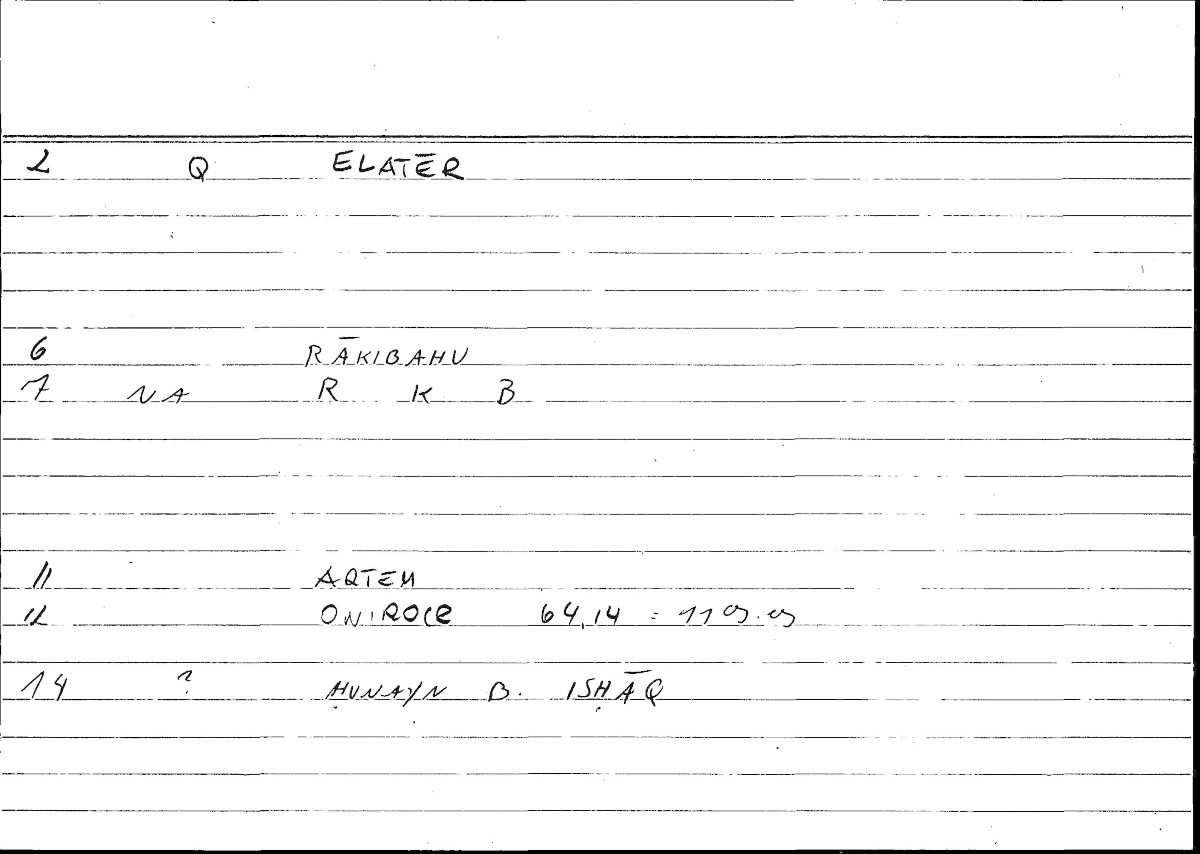 2 Q ELATĒR
6 RĀKIBAHU
7 NA R K B
11 ARTEM
12 ONIROCR 64,14 =
14 ? ḤUNAYN B. ISḤĀQ